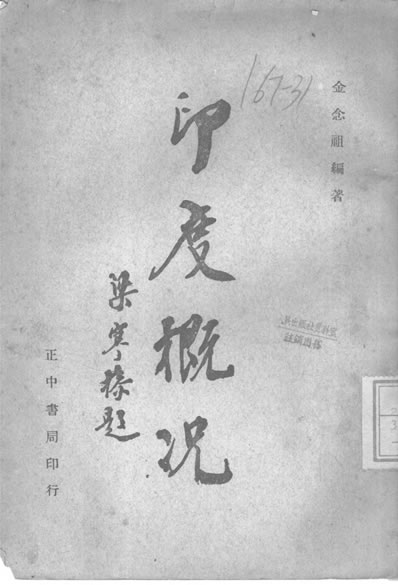 金念祖編著
167-31
印度概况
梁寒操題
正中書局印行